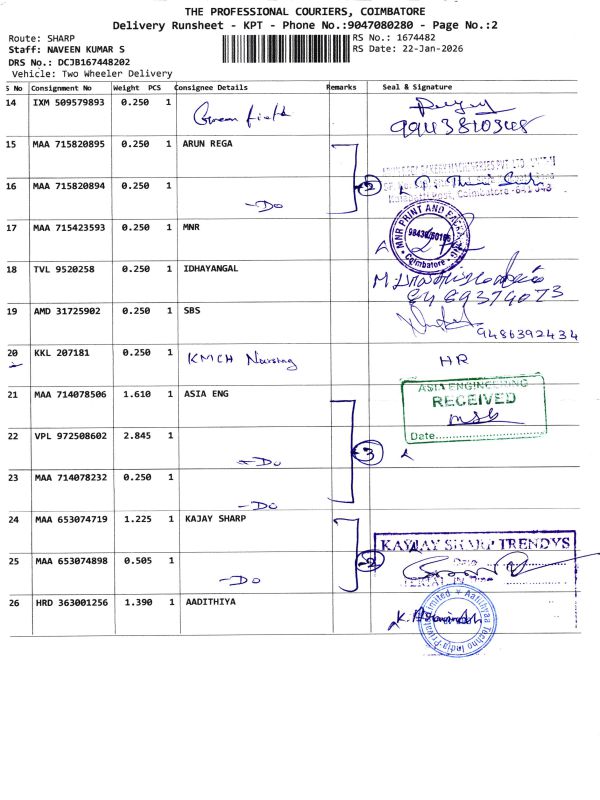 THE PROFESSIONAL COURIERS, COIMBATORE
Delivery Runsheet - KPT - Phone No.:9047080280 - Page No.:2
Route: SHARP
Staff: NAVEEN KUMAR S
DRS No.: DCJB167448202
Vehicle: Two Wheeler Delivery
RS No.: 1674482
RS Date: 22-Jan-2026
S No Consignment No Weight PCS Consignee Details Remarks Seal & Signature
14 IXM 509579893 0.250 1 Green field
9943810348
15 MAA 715820895 0.250 1 ARUN REGA
16 MAA 715820894 0.250 1 -Do 2
Coimbatore
17 MAA 715423593 0.250 1 MNR
MNR PRINT AND PACKAGING
Coimbatore
18 TVL 9520258 0.250 1 IDHAYANGAL
8489374073
19 AMD 31725902 0.250 1 SBS
9486392434
20 KKL 207181 0.250 1 KMCH Nursing HR
21 MAA 714078506 1.610 1 ASIA ENG
ASIA ENGINEERING
RECEIVED
Date
22 VPL 972508602 2.845 1 -Do 3
23 MAA 714078232 0.250 1 -Do
24 MAA 653074719 1.225 1 KAJAY SHARP
KAYJAY SHARP TRENDYS
25 MAA 653074898 0.505 1 -Do 2
Date
26 HRD 363001256 1.390 1 AADITHIYA
Aadithyaa Techno India Private Limited